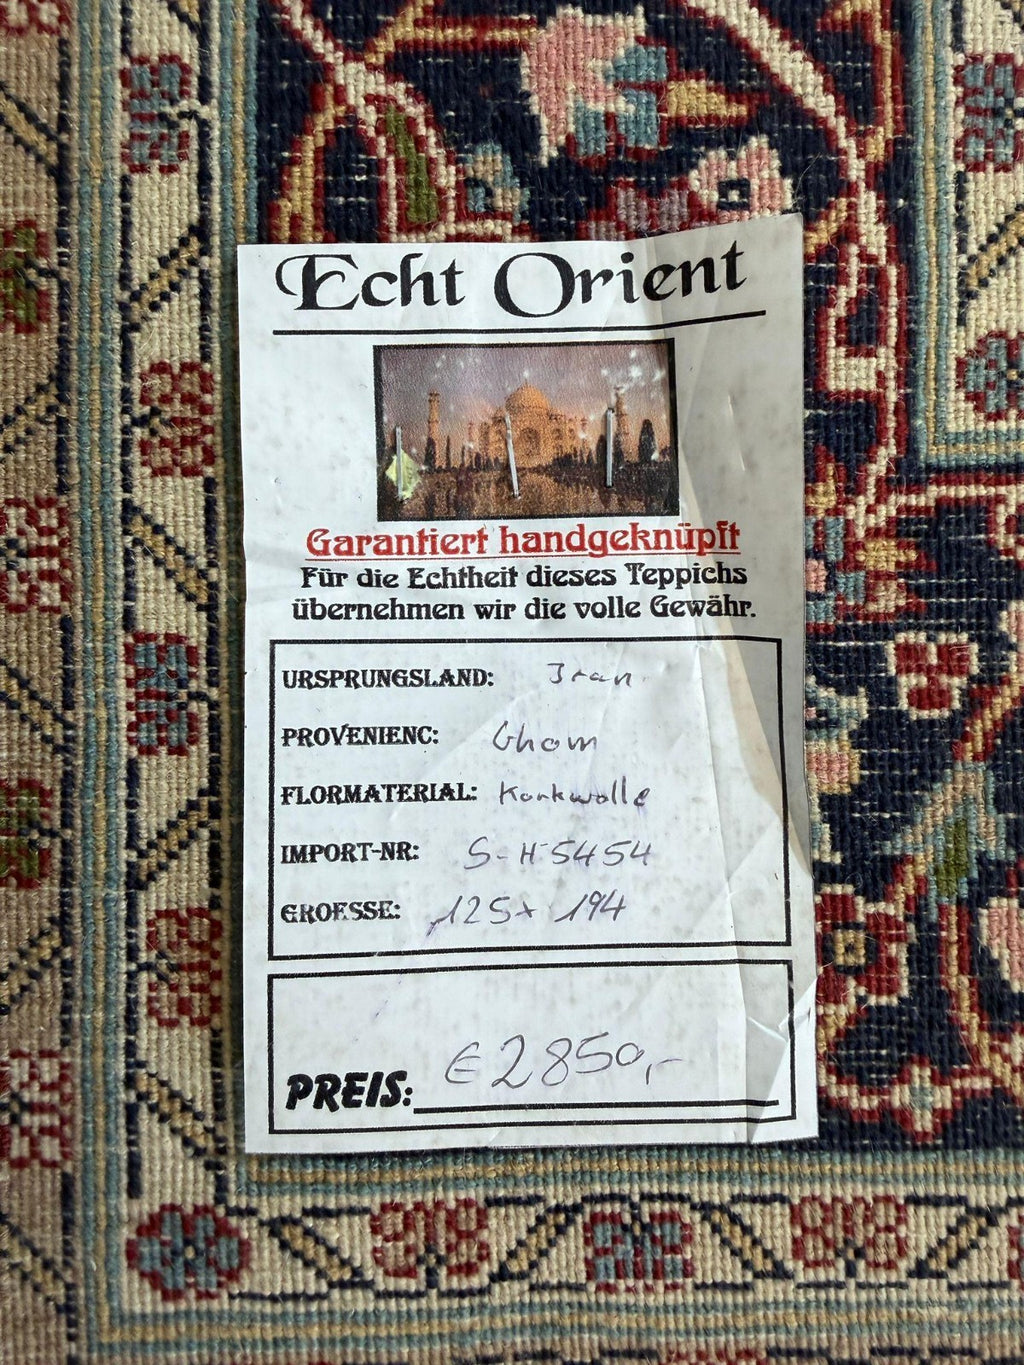 Echt Orient
Garantiert handgeknüpft
Für die Echtheit dieses Teppichs
übernehmen wir die volle Gewähr.
URSPRUNGSLAND: Iran
PROVENIENC: Ghom
FLORMATERIAL: Korkwolle
IMPORT-NR: S-H5454
GROESSE: 125x 194
PREIS: € 2850,-